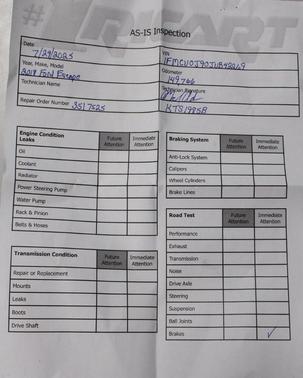 AS-IS Inspection
Date
7/29/2025
VIN
Year, Make, Model
2018 Ford Escape
Odometer
149,766
Technician Name
Technician Signature
Repair Order Number 3517525
KTS1985A
Engine Condition
Leaks
Future Attention
Immediate Attention
Oil
Coolant
Radiator
Power Steering Pump
Water Pump
Rack & Pinion
Belts & Hoses
Transmission Condition
Future Attention
Immediate Attention
Repair or Replacement
Mounts
Leaks
Boots
Drive Shaft
Braking System
Future Attention
Immediate Attention
Anti-Lock System
Calipers
Wheel Cylinders
Brake Lines
Road Test
Future Attention
Immediate Attention
Performance
Exhaust
Transmission
Noise
Drive Axle
Steering
Suspension
Ball Joints
Brakes ✓